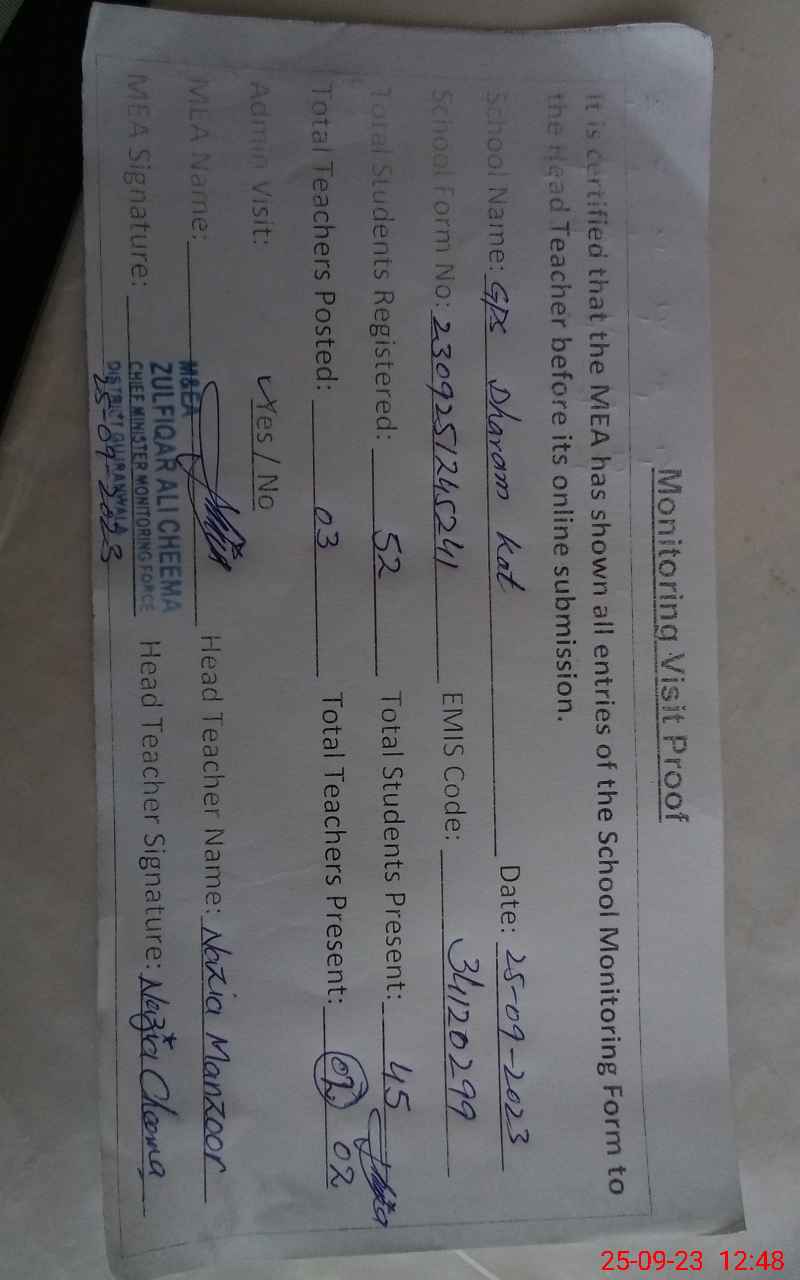 Monitoring Visit Proof
It is certified that the MEA has shown all entries of the School Monitoring Form to
the Head Teacher before its online submission.
School Name: GPS Dharam kot Date: 25-09-2023
School Form No: 2309251245241 EMIS Code: 34120299
Total Students Registered: 52 Total Students Present: 45
Total Teachers Posted: 03 Total Teachers Present: 02 02
Admin Visit: ✓Yes / No
MEA Name: Head Teacher Name: Nazia Manzoor
M&EA
ZULFIQAR ALI CHEEMA
CHIEF MINISTER MONITORING FORCE
DISTRICT GUJRANWALA
MEA Signature: 25-09-2023 Head Teacher Signature: Nazia Cheema
25-09-23 12:48